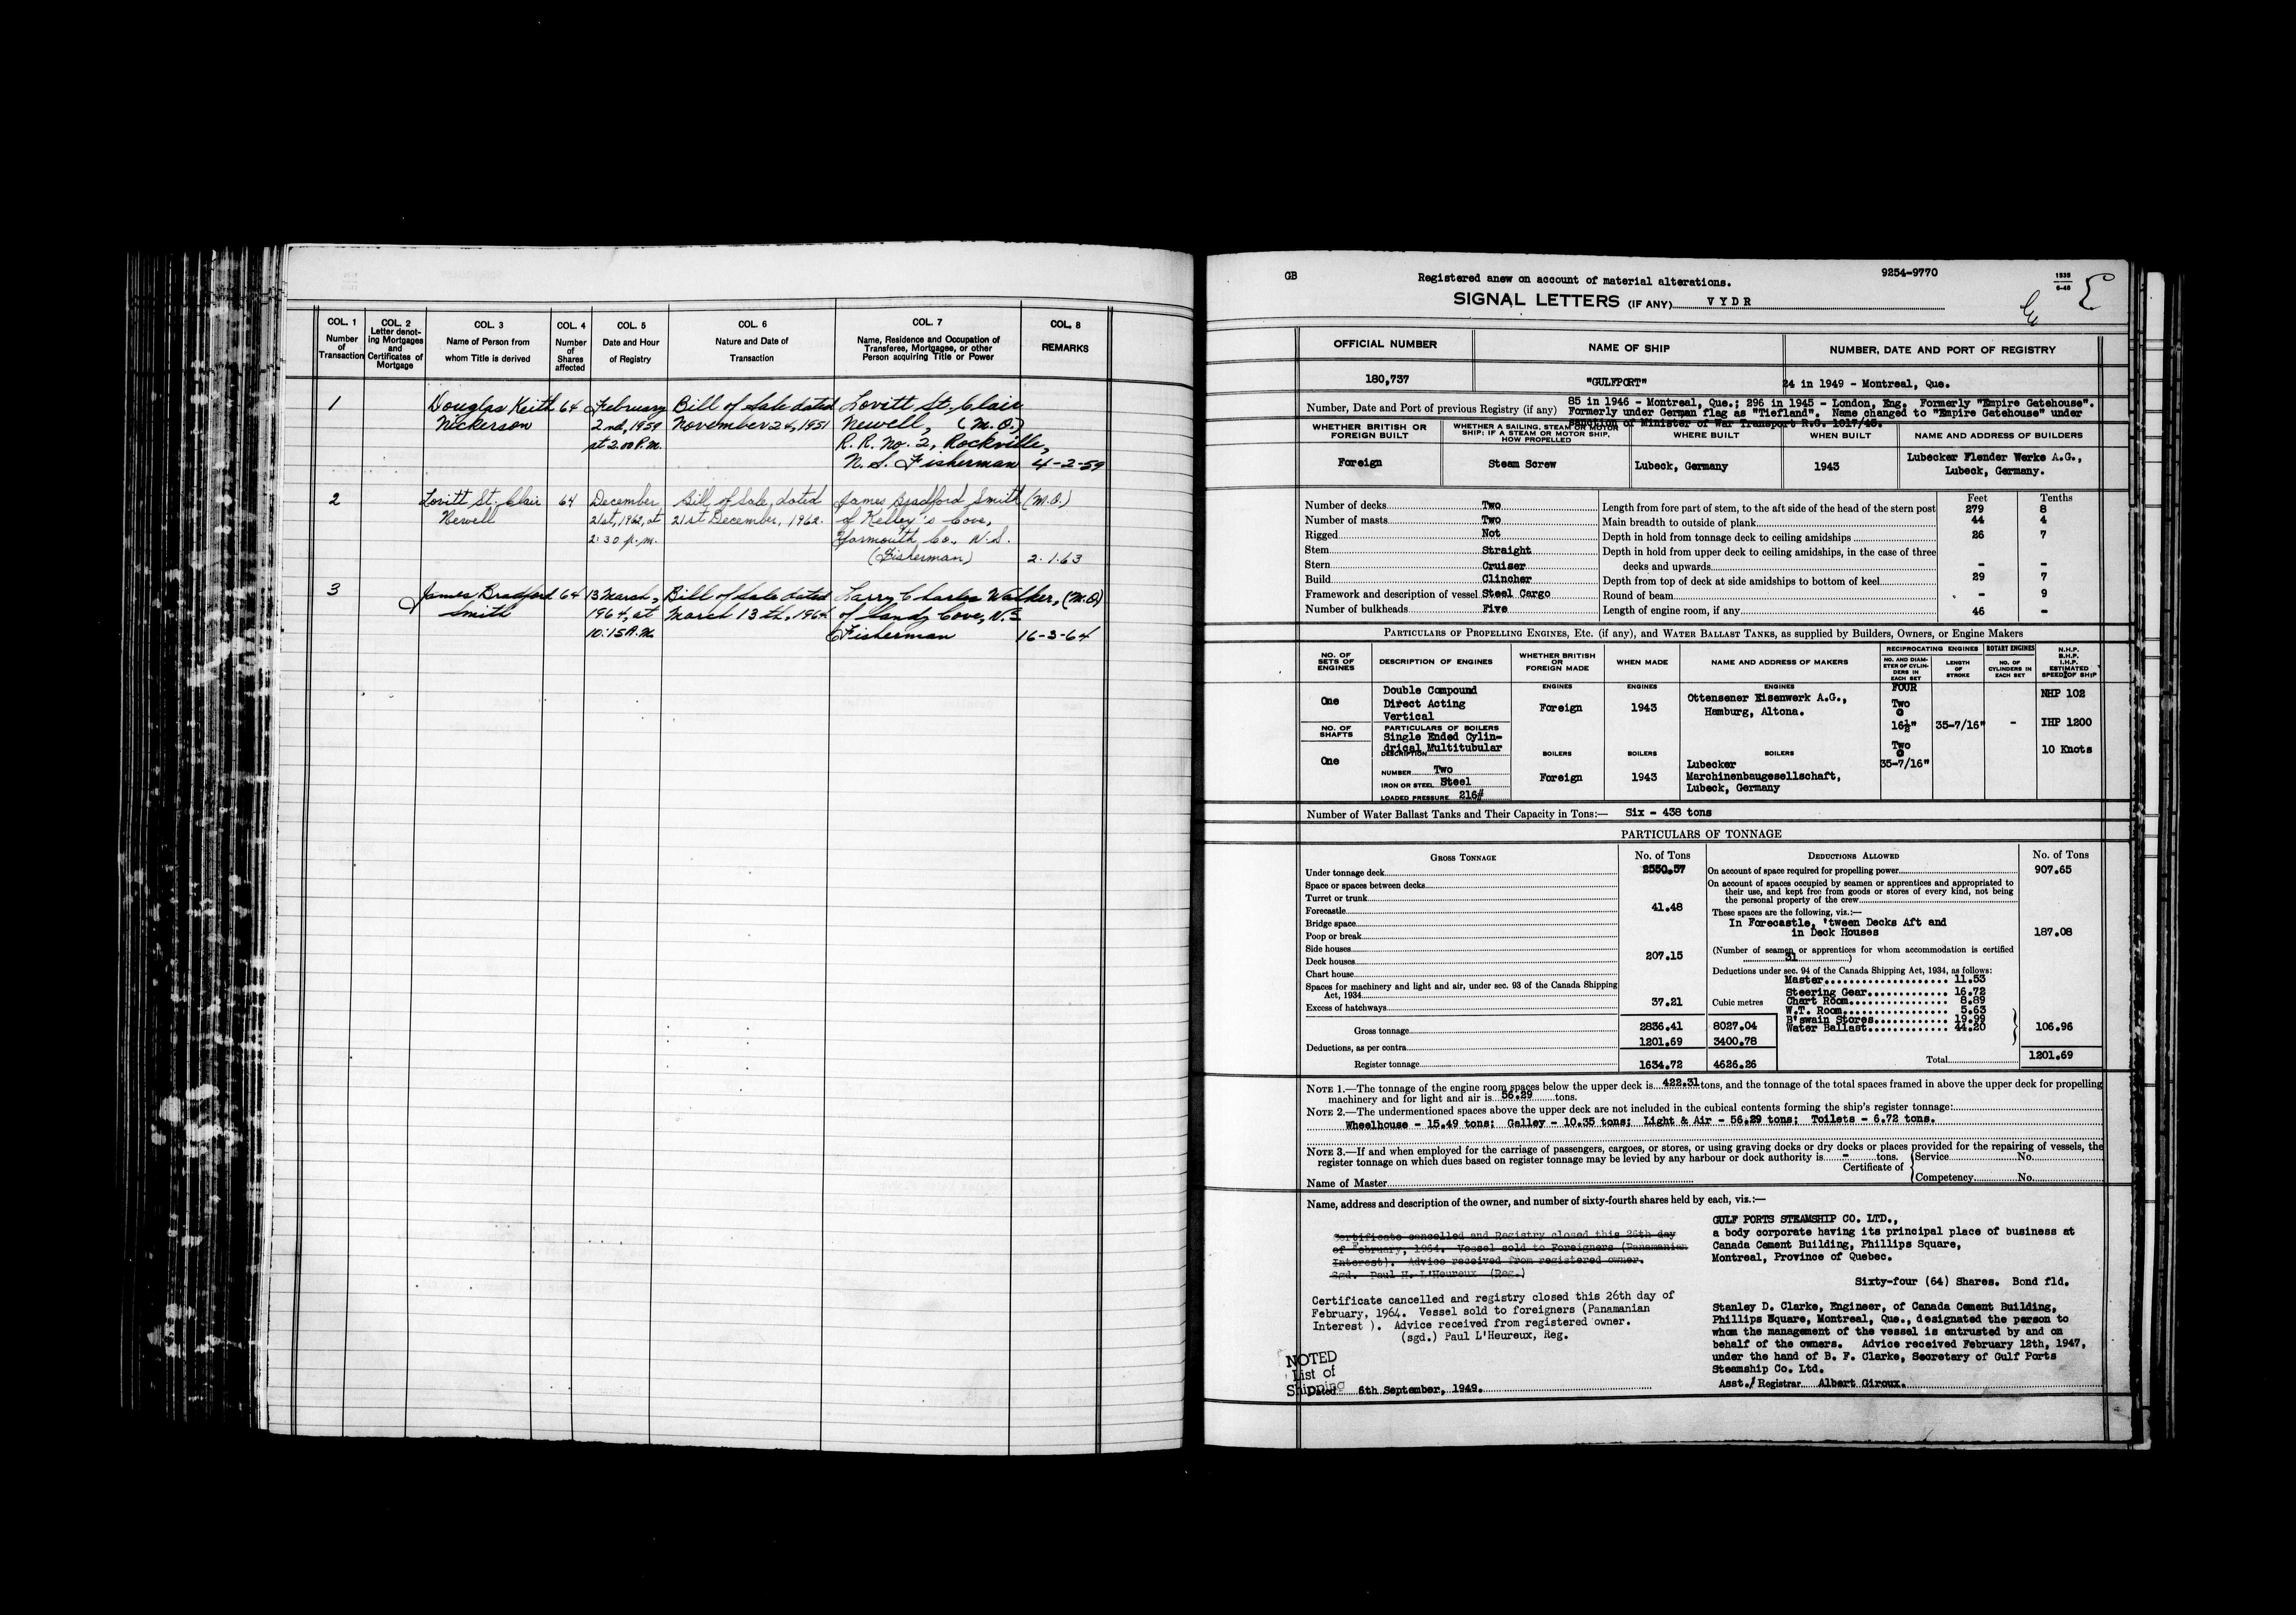 COL. 1
Number
of
Transaction
COL. 2
Letter denot-
ing Mortgages
and
Certificates of
Mortgage
COL. 3
Name of Person from
whom Title is derived
COL. 4
Number
of
Shares
affected
COL. 5
Date and Hour
of Registry
COL. 6
Nature and Date of
Transaction
COL. 7
Name, Residence and Occupation of
Transferee, Mortgagee, or other
Person acquiring Title or Power
COL. 8
REMARKS
1 Douglas Keith 64 February Bill of Sale dated Lovitt St. Clair
Nickerson 2nd, 1959 November 24, 1951 Newell, (M.O.)
at 2.00 P.M. R. R. No. 2, Rockville,
N. S. Fisherman 4-2-59
2 Lovitt St. Clair 64 December Bill of Sale, dated James Bradford Smith (M.O.)
Newell 21st, 1962, at 21st December, 1962. of Kelley's Cove,
2:30 p.m. Yarmouth Co., N.S.
(Fisherman) 2.1.63
3 James Bradford 64 13 March, Bill of Sale dated Larry Charles Walker, (M.O)
Smith 1964, at March 13th, 1964 of Sandy Cove, N.S
10:15 A.M. Fisherman 16-3-64
GB
Registered anew on account of material alterations.
9254-9770
1935
6-48
SIGNAL LETTERS (IF ANY) VYDR
OFFICIAL NUMBER NAME OF SHIP NUMBER, DATE AND PORT OF REGISTRY
180,737 "GULFPORT" 24 in 1949 - Montreal, Que.
Number, Date and Port of previous Registry (if any) 85 in 1946 - Montreal, Que.; 296 in 1945 - London, Eng. Formerly "Empire Gatehouse".
Formerly under German flag as "Tiefland". Name changed to "Empire Gatehouse" under
sanction of Minister of War Transport R.G. 1017/45.
WHETHER BRITISH OR
FOREIGN BUILT
WHETHER A SAILING, STEAM OR MOTOR
SHIP; IF A STEAM OR MOTOR SHIP,
HOW PROPELLED
WHERE BUILT
WHEN BUILT
NAME AND ADDRESS OF BUILDERS
Foreign Steam Screw Lubeck, Germany 1943 Lubecker Flender Werke A.G.,
Lubeck, Germany.
Feet Tenths
Number of decks Two Length from fore part of stem, to the aft side of the head of the stern post 279 8
Number of masts Two Main breadth to outside of plank 44 4
Rigged Not Depth in hold from tonnage deck to ceiling amidships 26 7
Stem Straight Depth in hold from upper deck to ceiling amidships, in the case of three
Stern Cruiser decks and upwards - -
Build Clincher Depth from top of deck at side amidships to bottom of keel 29 7
Framework and description of vessel Steel Cargo Round of beam - 9
Number of bulkheads Five Length of engine room, if any 46 -
PARTICULARS OF PROPELLING ENGINES, ETC. (if any), and WATER BALLAST TANKS, as supplied by Builders, Owners, or Engine Makers
NO. OF
SETS OF
ENGINES
DESCRIPTION OF ENGINES
WHETHER BRITISH
OR
FOREIGN MADE
WHEN MADE
NAME AND ADDRESS OF MAKERS
RECIPROCATING ENGINES
NO. AND DIAM-
ETER OF CYLIN-
DERS IN
EACH SET
LENGTH
OF
STROKE
ROTARY ENGINES
NO. OF
CYLINDERS IN
EACH SET
N.H.P.
B.H.P.
I.H.P.
ESTIMATED
SPEED OF SHIP
One
Double Compound
Direct Acting
Vertical
ENGINES
Foreign
ENGINES
1943
ENGINES
Ottensener Eisenwerk A.G.,
Hamburg, Altona.
FOUR
Two
@
16½"
Two
@
35-7/16"
35-7/16"
-
NHP 102
IHP 1200
10 Knots
NO. OF
SHAFTS
One
PARTICULARS OF BOILERS
Single Ended Cylin-
drical Multitubular
DESCRIPTION
NUMBER Two
IRON OR STEEL Steel
LOADED PRESSURE 216#
BOILERS
Foreign
BOILERS
1943
BOILERS
Lubecker
Marchinenbaugesellschaft,
Lubeck, Germany
Number of Water Ballast Tanks and Their Capacity in Tons:— Six - 438 tons
PARTICULARS OF TONNAGE
GROSS TONNAGE No. of Tons
Under tonnage deck 2550.57
Space or spaces between decks
Turret or trunk
Forecastle 41.48
Bridge space
Poop or break
Side houses
Deck houses 207.15
Chart house
Spaces for machinery and light and air, under sec. 93 of the Canada Shipping
Act, 1934
Excess of hatchways 37.21 Cubic metres
Gross tonnage 2836.41 8027.04
Deductions, as per contra 1201.69 3400.78
Register tonnage 1634.72 4626.26
DEDUCTIONS ALLOWED No. of Tons
On account of space required for propelling power 907.65
On account of spaces occupied by seamen or apprentices and appropriated to
their use, and kept free from goods or stores of every kind, not being
the personal property of the crew
These spaces are the following, viz.:—
In Forecastle, 'tween Decks Aft and
in Deck Houses 187.08
(Number of seamen or apprentices for whom accommodation is certified
31 )
Deductions under sec. 94 of the Canada Shipping Act, 1934, as follows:
Master 11.53
Steering Gear 16.72
Chart Room 8.89
W.T. Room 5.63
B'swain Stores 19.99
Water Ballast 44.20 106.96
Total 1201.69
NOTE 1.—The tonnage of the engine room spaces below the upper deck is 422.31 tons, and the tonnage of the total spaces framed in above the upper deck for propelling
machinery and for light and air is 56.29 tons.
NOTE 2.—The undermentioned spaces above the upper deck are not included in the cubical contents forming the ship's register tonnage:
Wheelhouse - 15.49 tons; Galley - 10.35 tons; Light & Air - 56.29 tons; Toilets - 6.72 tons.
NOTE 3.—If and when employed for the carriage of passengers, cargoes, or stores, or using graving docks or dry docks or places provided for the repairing of vessels, the
register tonnage on which dues based on register tonnage may be levied by any harbour or dock authority is - tons.
Certificate of
Service No.
Competency No.
Name of Master
Name, address and description of the owner, and number of sixty-fourth shares held by each, viz.:—
Certificate cancelled and Registry closed this 26th day
of February, 1964. Vessel sold to Foreigners (Panamanian
Interest). Advice received from registered owner.
Sgd. Paul H. L'Heureux (Reg.)
Certificate cancelled and registry closed this 26th day of
February, 1964. Vessel sold to foreigners (Panamanian
Interest ). Advice received from registered owner.
(sgd.) Paul L'Heureux, Reg.
NOTED
List of
Shipping
Dated 6th September, 1949.
GULF PORTS STEAMSHIP CO. LTD.,
a body corporate having its principal place of business at
Canada Cement Building, Phillips Square,
Montreal, Province of Quebec.
Sixty-four (64) Shares. Bond fld.
Stanley D. Clarke, Engineer, of Canada Cement Building,
Phillips Square, Montreal, Que., designated the person to
whom the management of the vessel is entrusted by and on
behalf of the owners. Advice received February 12th, 1947,
under the hand of B. F. Clarke, Secretary of Gulf Ports
Steamship Co. Ltd.
Asst./ Registrar Albert Giroux.